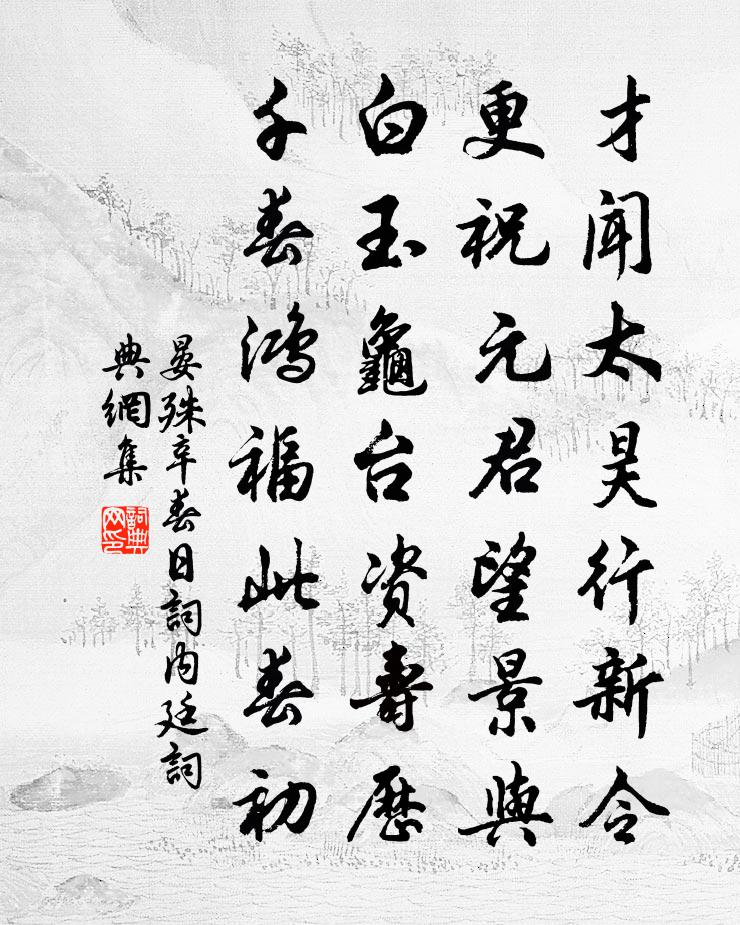 才闻太昊行新令
更祝元君望景舆
白玉龜台资壽歷
千春鸿福此春初
晏殊辛春日詞内廷詞
典網集
詞典
网印